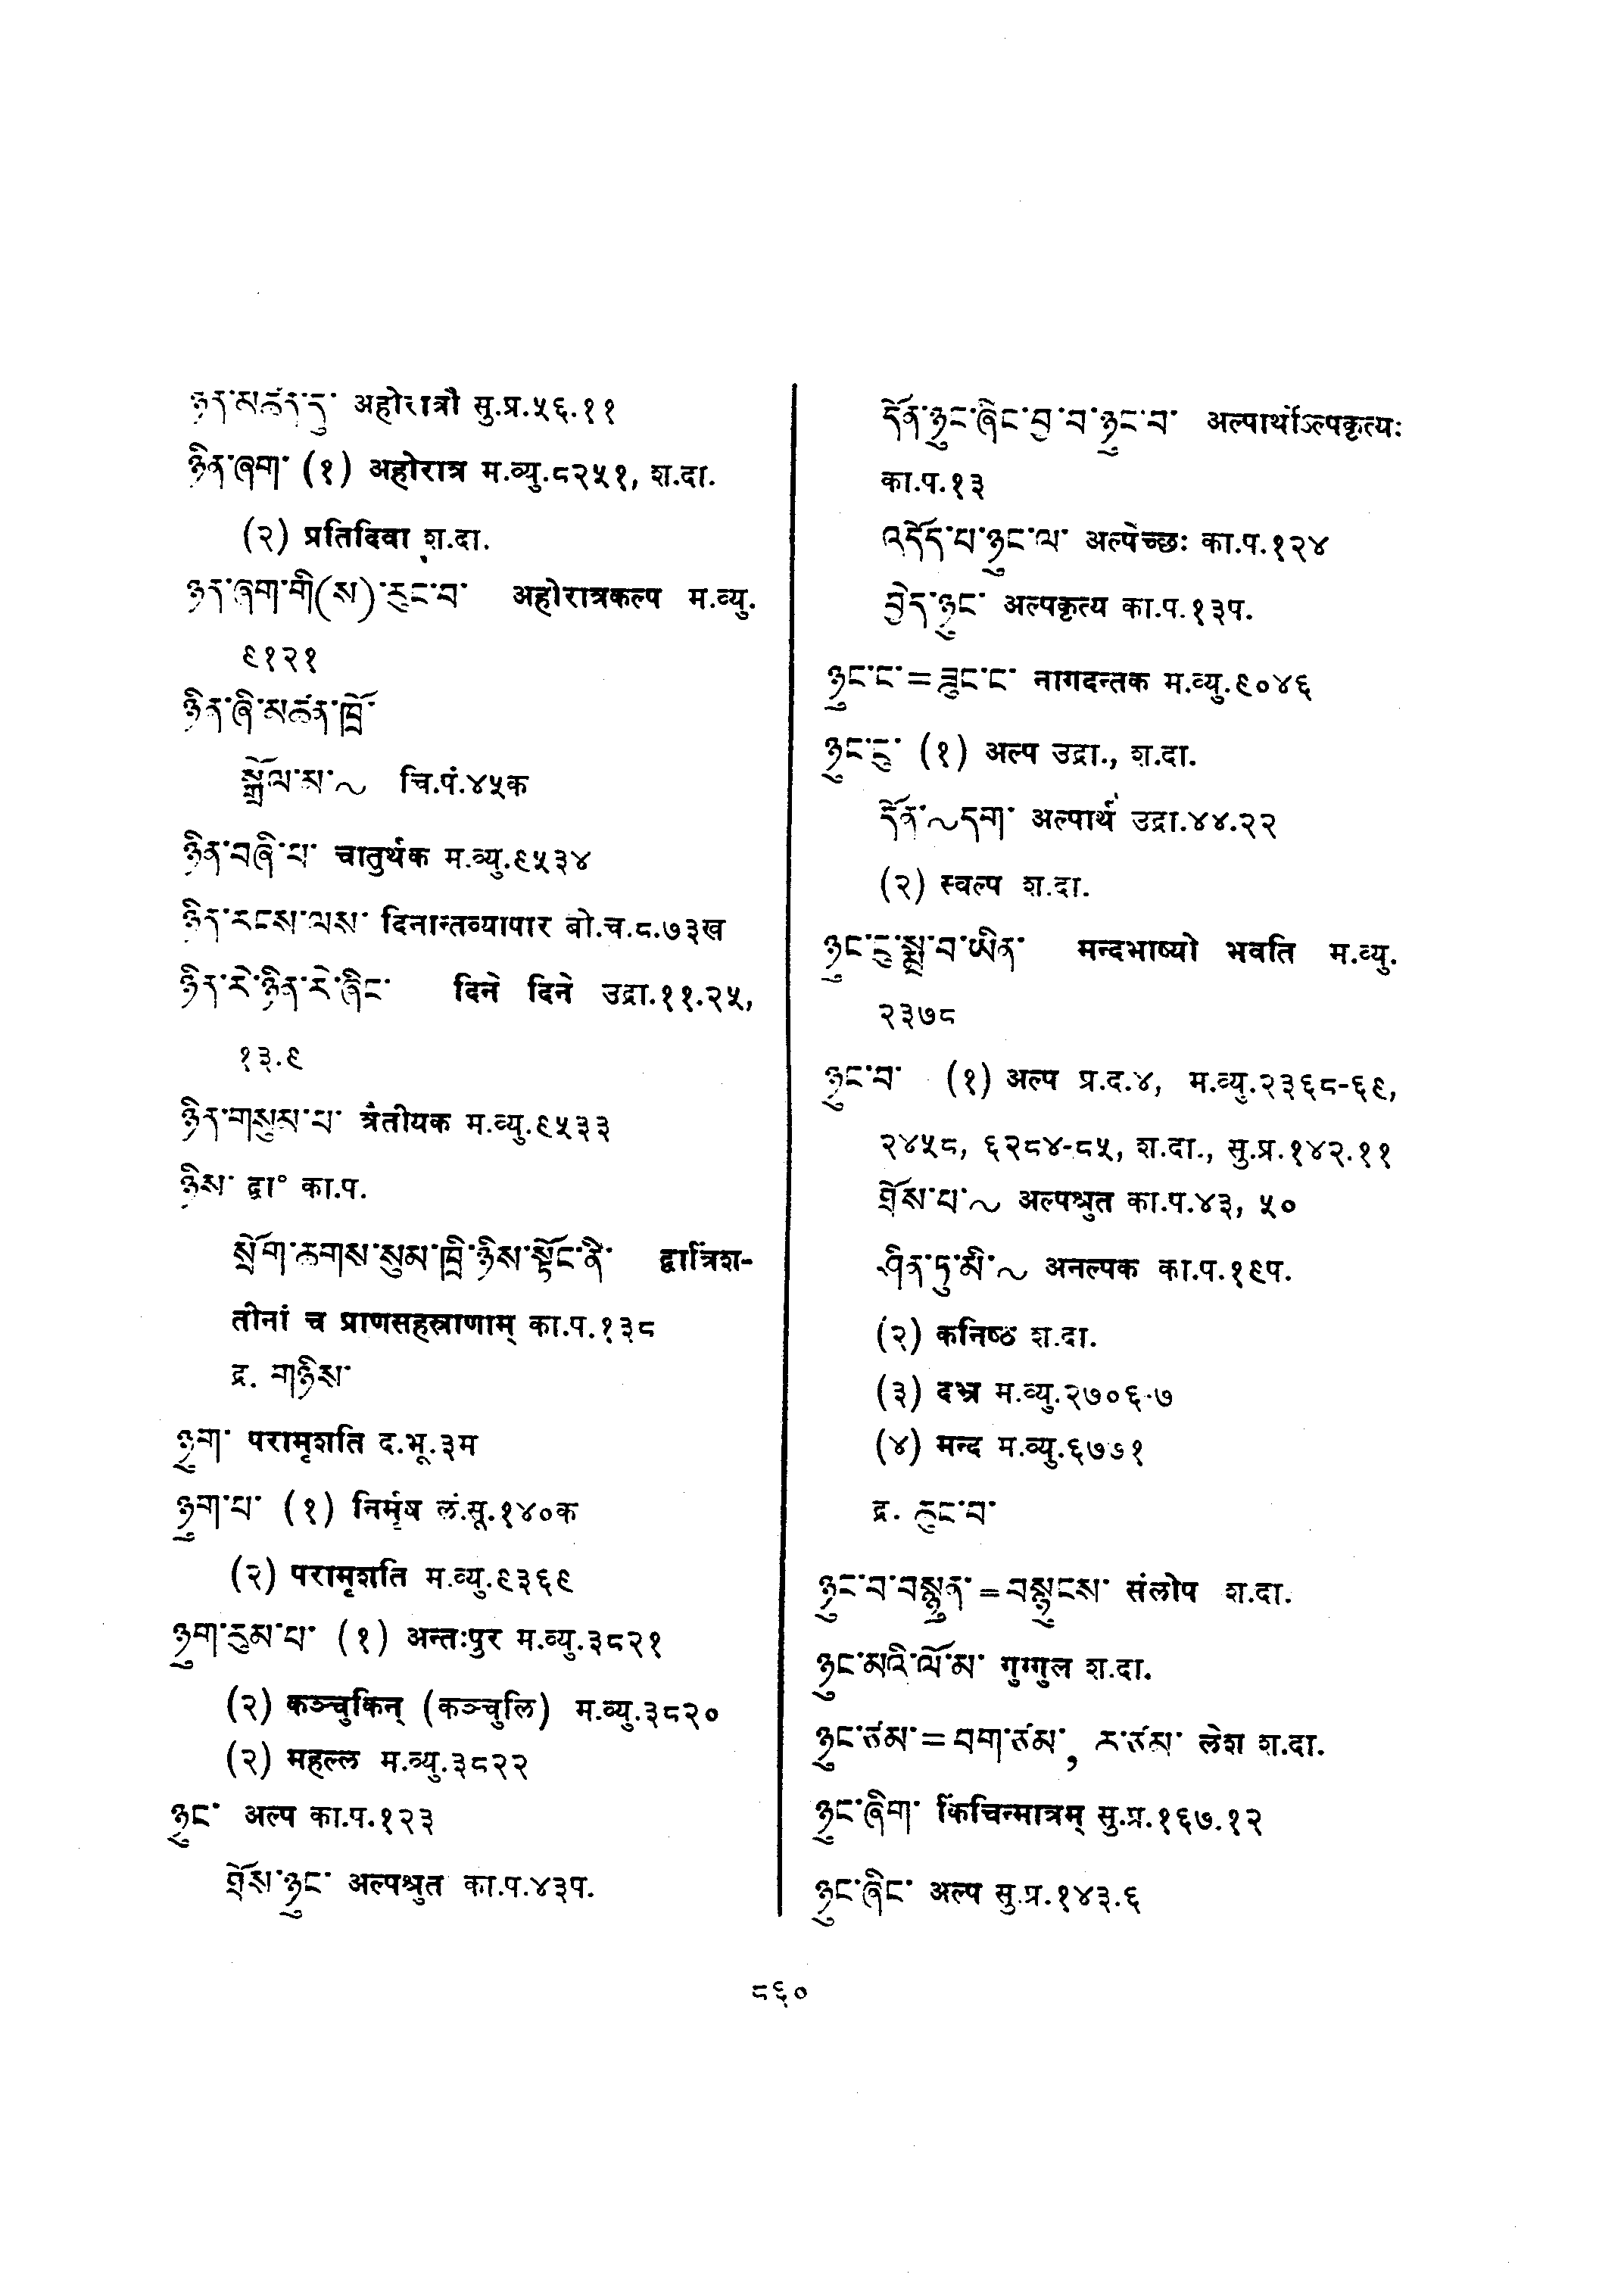 ཉིན་མཚན་དུ་ अहोरात्रौ सु.प्र.५६.११
ཉིན་ཞག་ (१) अहोरात्र म.व्यु.८२५१, श.दा.
(२) प्रतिदिवा श.दा.
ཉིན་ཞག་གི(ས)་རུང་བ་ अहोरात्रकल्प म.व्यु.
९१२१
ཉིན་ཞི་མཚན་ཁྲོ་
སྒྲོལ་མ་~ चि.पं.४५क
ཉིན་བཞི་པ་ चातुर्थक म.व्यु.९५३४
ཉིན་རངས་ལས་ दिनान्तव्यापार बो.च.८.७३ख
ཉིན་རེ་ཉིན་རེ་ཞིང་ दिने दिने उद्रा.११.२५,
१३.९
ཉིན་གསུམ་པ་ त्रैतीयक म.व्यु.९५३३
ཉིས་ द्वा° का.प.
སྲོག་ཆགས་སུམ་ཁྲི་ཉིས་སྟོང་ནི་ द्वात्रिंश-
तीनां च प्राणसहस्राणाम् का.प.१३८
द्र. གཉིས་
ཉུག་ परामृशति द.भू.३म
ཉུག་པ་ (१) निर्मृष लं.सू.१४०क
(२) परामृशति म.व्यु.९३६९
ཉུག་རུམ་པ་ (१) अन्तःपुर म.व्यु.३८२१
(२) कञ्चुकिन् (कञ्चुलि) म.व्यु.३८२०
(२) महल्ल म.व्यु.३८२२
ཉུང་ अल्प का.प.१२३
ཐོས་ཉུང་ अल्पश्रुत का.प.४३प.
དོན་ཉུང་ཞིང་བྱ་བ་ཉུང་བ་ अल्पार्थोऽल्पकृत्यः
का.प.१३
འདོད་པ་ཉུང་ལ་ अल्पेच्छः का.प.१२४
བྱེད་ཉུང་ अल्पकृत्य का.प.१३प.
ཉུང་ང་=ཟུང་ང་ नागदन्तक म.व्यु.९०४६
ཉུང་ངུ་ (१) अल्प उद्रा., श.दा.
དོན་~དག་ अल्पार्थ उद्रा.४४.२२
(२) स्वल्प श.दा.
ཉུང་ངུ་སྨྲ་བ་ཡིན་ मन्दभाष्यो भवति म.व्यु.
२३७८
ཉུང་བ་ (१) अल्प प्र.द.४, म.व्यु.२३६८-६९,
२४५८, ६२८४-८५, श.दा., सु.प्र.१४२.११
ཐོས་པ་~ अल्पश्रुत का.प.४३, ५०
ཤིན་ཏུ་མི་~ अनल्पक का.प.१९प.
(२) कनिष्ठ श.दा.
(३) दभ्र म.व्यु.२७०६-७
(४) मन्द म.व्यु.६७७१
द्र. ཆུང་བ་
ཉུང་བ་བསྙུན་=བསྙུངས་ संलोप श.दा.
ཉུང་མའི་ལོ་མ་ गुग्गुल श.दा.
ཉུང་ཙམ་=བག་ཙམ་, ཅ་ཙམ་ लेश श.दा.
ཉུང་ཞིག་ किंचिन्मात्रम् सु.प्र.१६७.१२
ཉུང་ཞིང་ अल्प सु.प्र.१४३.६
८६०